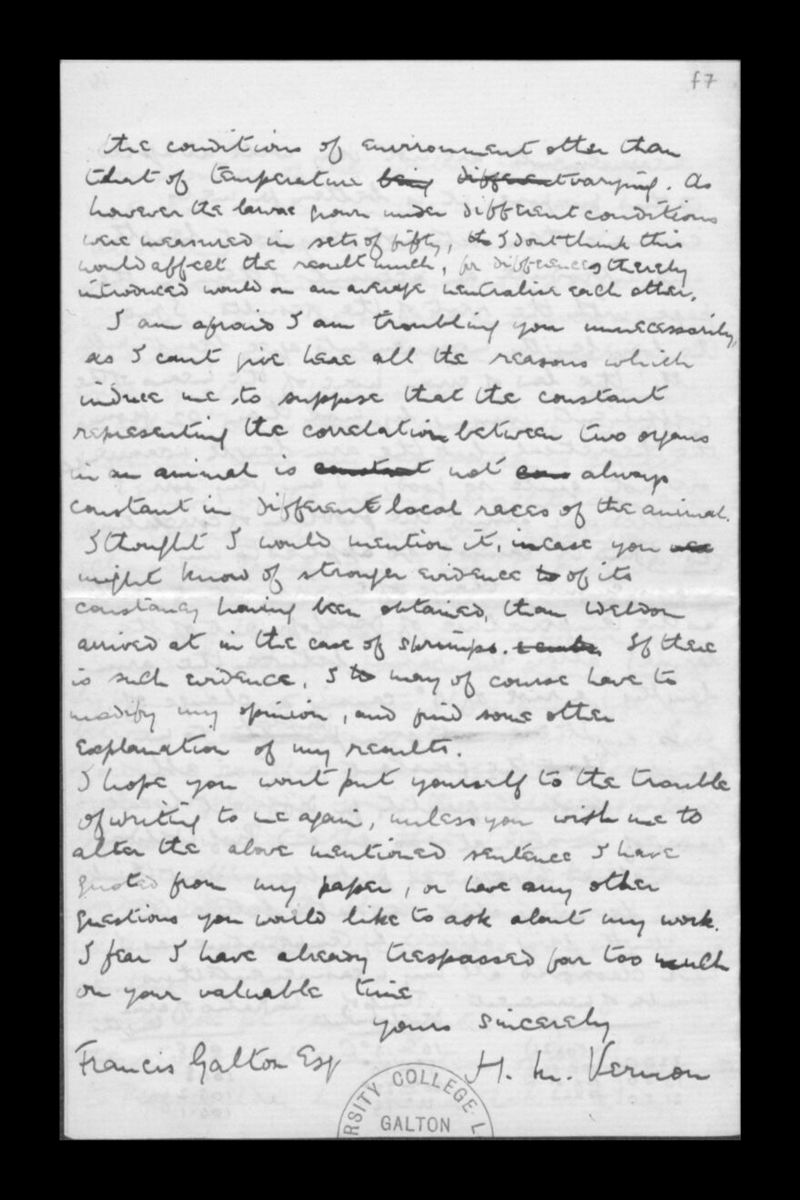 f7
the conditions of environment other than
that of temperature being different varying. As
however the larvae grown under different conditions
were measured in sets of fifty, th I dont think this
would affect the result much, for differences thereby
introduced would on an average neutralise each other.
I am afraid I am troubling you unnecessarily,
as I cant give here all the reasons which
induce me to suppose that the constant
representing the correlation between two organs
in an animal is constant not con always
constant in different local races of the animal.
I thought I would mention it, incase you
might know of stronger evidence to of its
constancy having been obtained, than Weldon
arrived at in the case of shrimps. If there
is such evidence, I to may of course have to
modify my opinion, and find some other
explanation of my results.
I hope you wont put yourself to the trouble
of writing to me again, unless you wish me to
alter the above mentioned sentence I have
quoted from my paper, or have any other
questions you would like to ask about my work.
I fear I have already trespassed far too much
on your valuable time
yours sincerely
Francis Galton Esq H. M. Vernon
RSITY COLLEGE L
GALTON